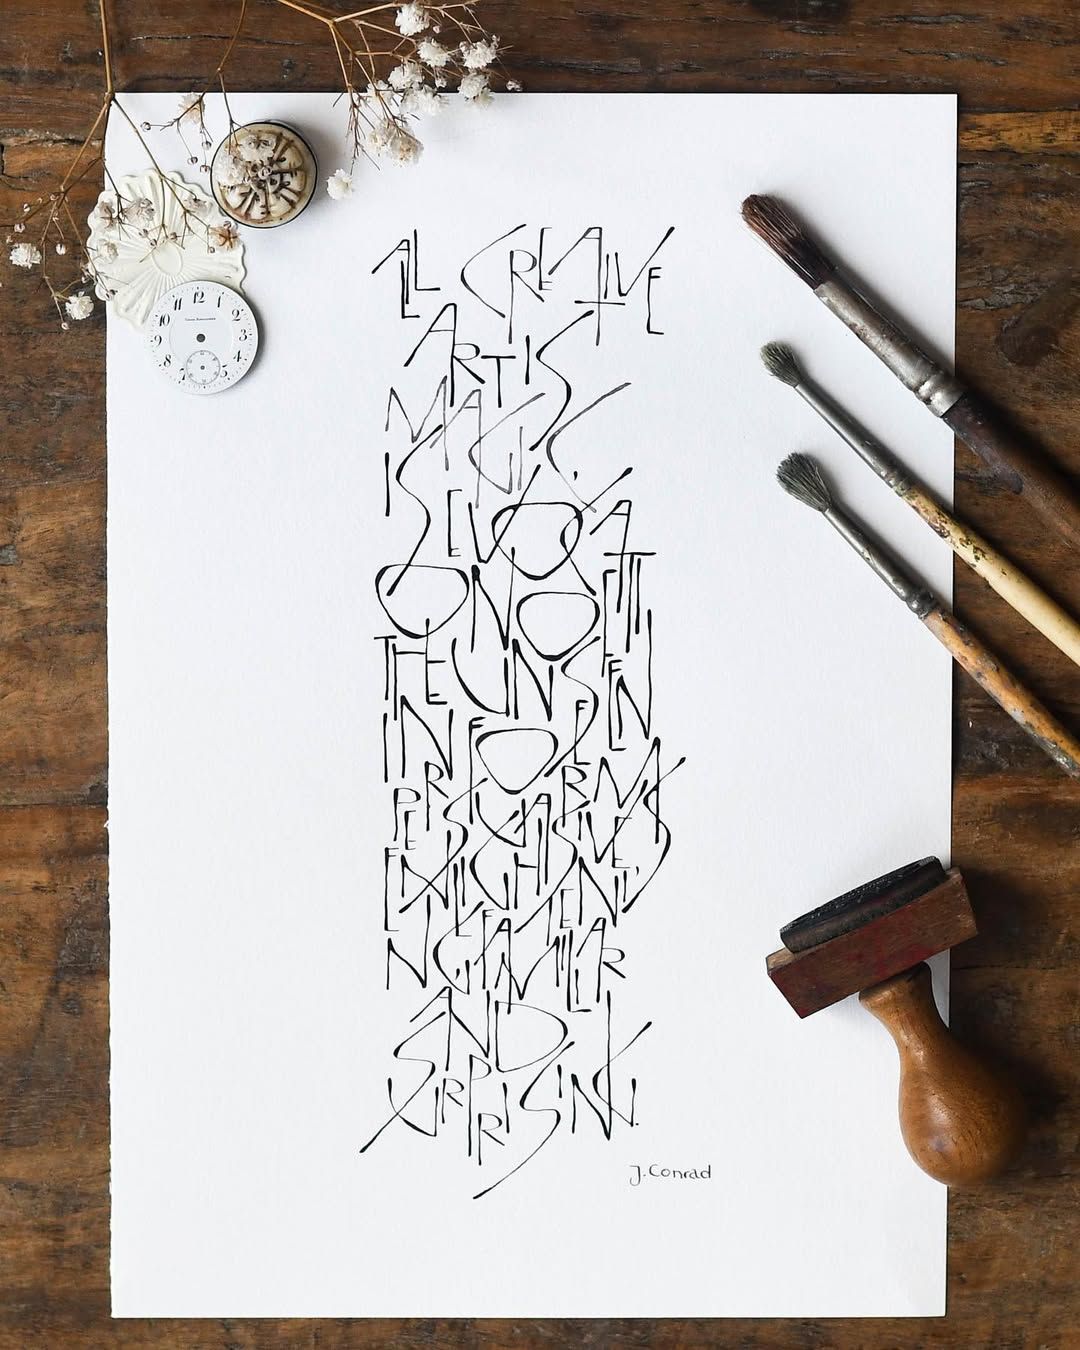 ALL CREATIVE
ART IS
MAGIC,
IS EVOCATI
ON OF
THE UNSEEN
IN FORMS
PERSUASIVE,
ENLIGHTEN
ING, FAMILIAR
AND
SURPRISING.
J. Conrad